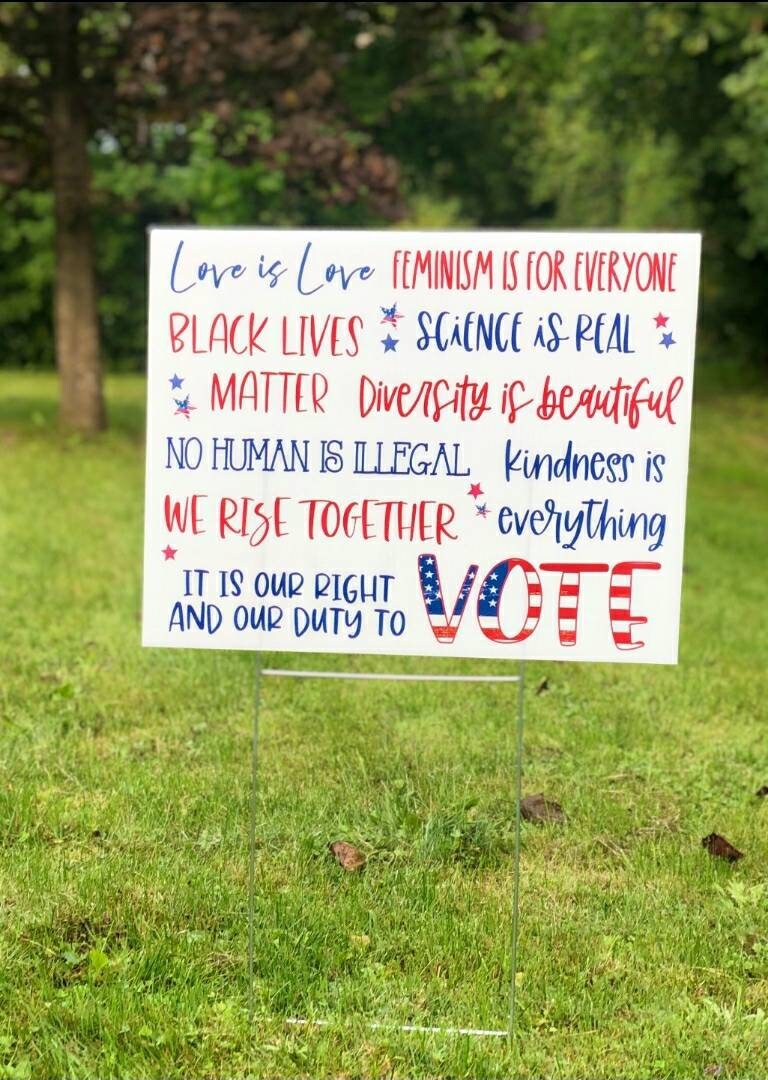 Love is Love FEMINISM IS FOR EVERYONE
BLACK LIVES SCiENCE iS REAL
MATTER Diversity is beautiful
NO HUMAN IS ILLEGAL kindness is
WE RISE TOGETHER everything
IT IS OUR RIGHT
AND OUR DUTY TO VOTE